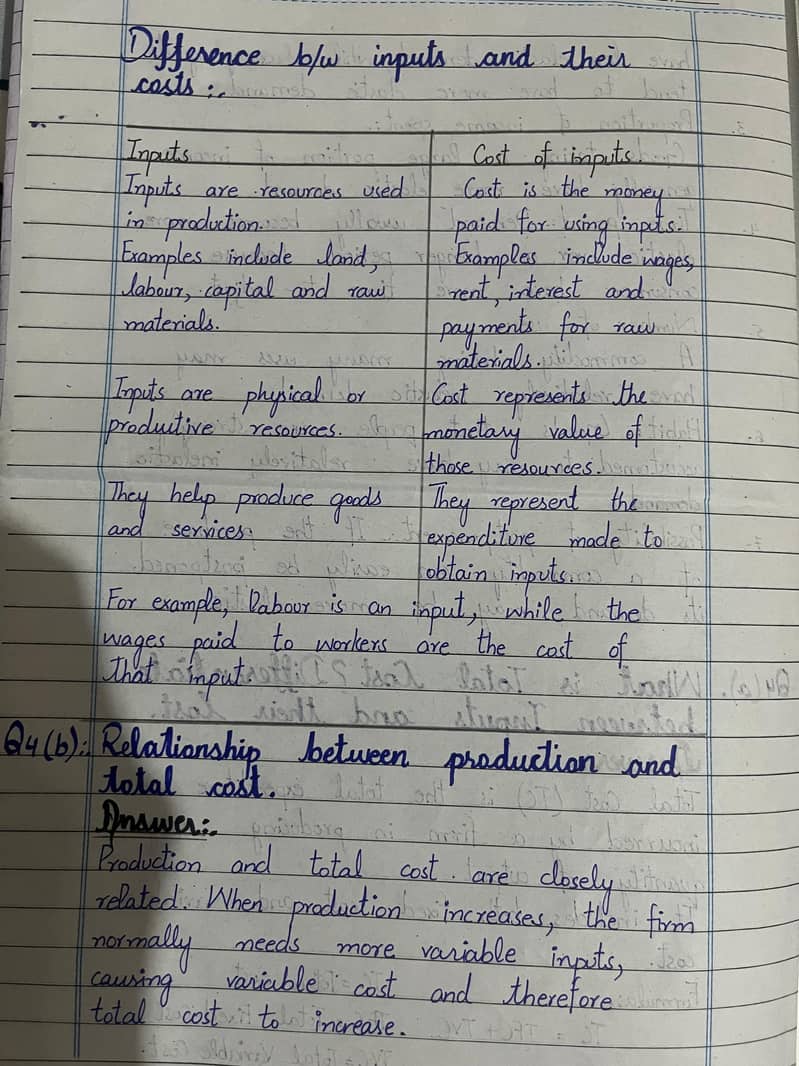 Difference b/w inputs and their
costs :-
Inputs
Inputs are resources used
in production.
Examples include land,
labour, capital and raw
materials.
Inputs are physical or
productive resources.
They help produce goods
and services.
Cost of inputs.
Cost is the money
paid for using inputs.
Examples include wages,
rent, interest and
payments for raw
materials.
Cost represents the
monetary value of
those resources.
They represent the
expenditure made to
obtain inputs.
For example, labour is an input, while the
wages paid to workers are the cost of
that input.
Q4(b): Relationship between production and
total cost.
Answer:-
Production and total cost are closely
related. When production increases, the firm
normally needs more variable inputs,
causing variable cost and therefore
total cost to increase.